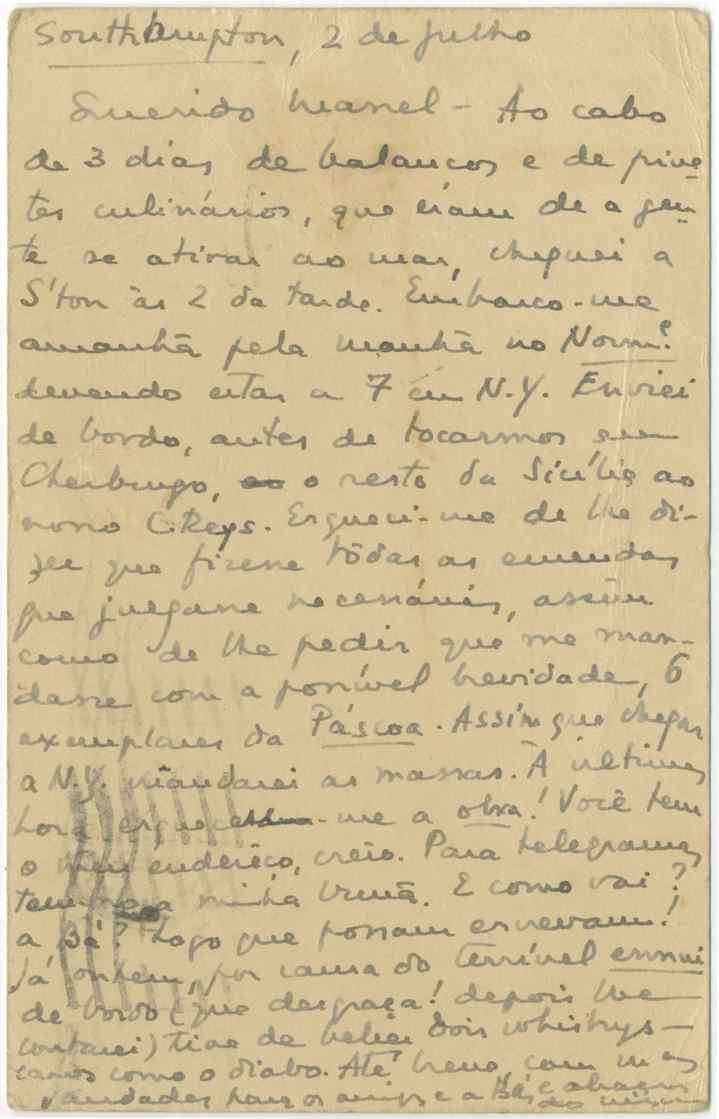 Southampton, 2 de Julho
Querido Manel - Ao cabo
de 3 dias de balanços e de pive-
tes culinários, que eram de a gen-
te se atirar ao mar, cheguei a
S'ton às 2 da tarde. Embarco-me
amanhã pela manhã no Norm.e
devendo estar a 7 em N.Y. Enviei
de bordo, antes de tocarmos em
Cherburgo, o resto da Sicília ao
nosso C. Reys. Esqueci-me de lhe di-
zer que fizesse tôdas as emendas
que julgasse necessárias, assim
como de lhe pedir que me man-
dasse com a possível brevidade, 6
exemplares da Páscoa. Assim que chegar
a N.Y. mandarei as massas. À última
hora esquece-me a obra! Você tem
o meu enderêço, creio. Para telegramas
tem-no a minha Irmã. E como vai
a Bá? Logo que possam escrevam!
Já ontem, por causa do terrível ennui
de bordo (que desgraça! depois lhe
contarei) tive de beber dois whiskys -
caros como o diabo. Até breve, com
saudades para os amigos e a Bá e abraços
do